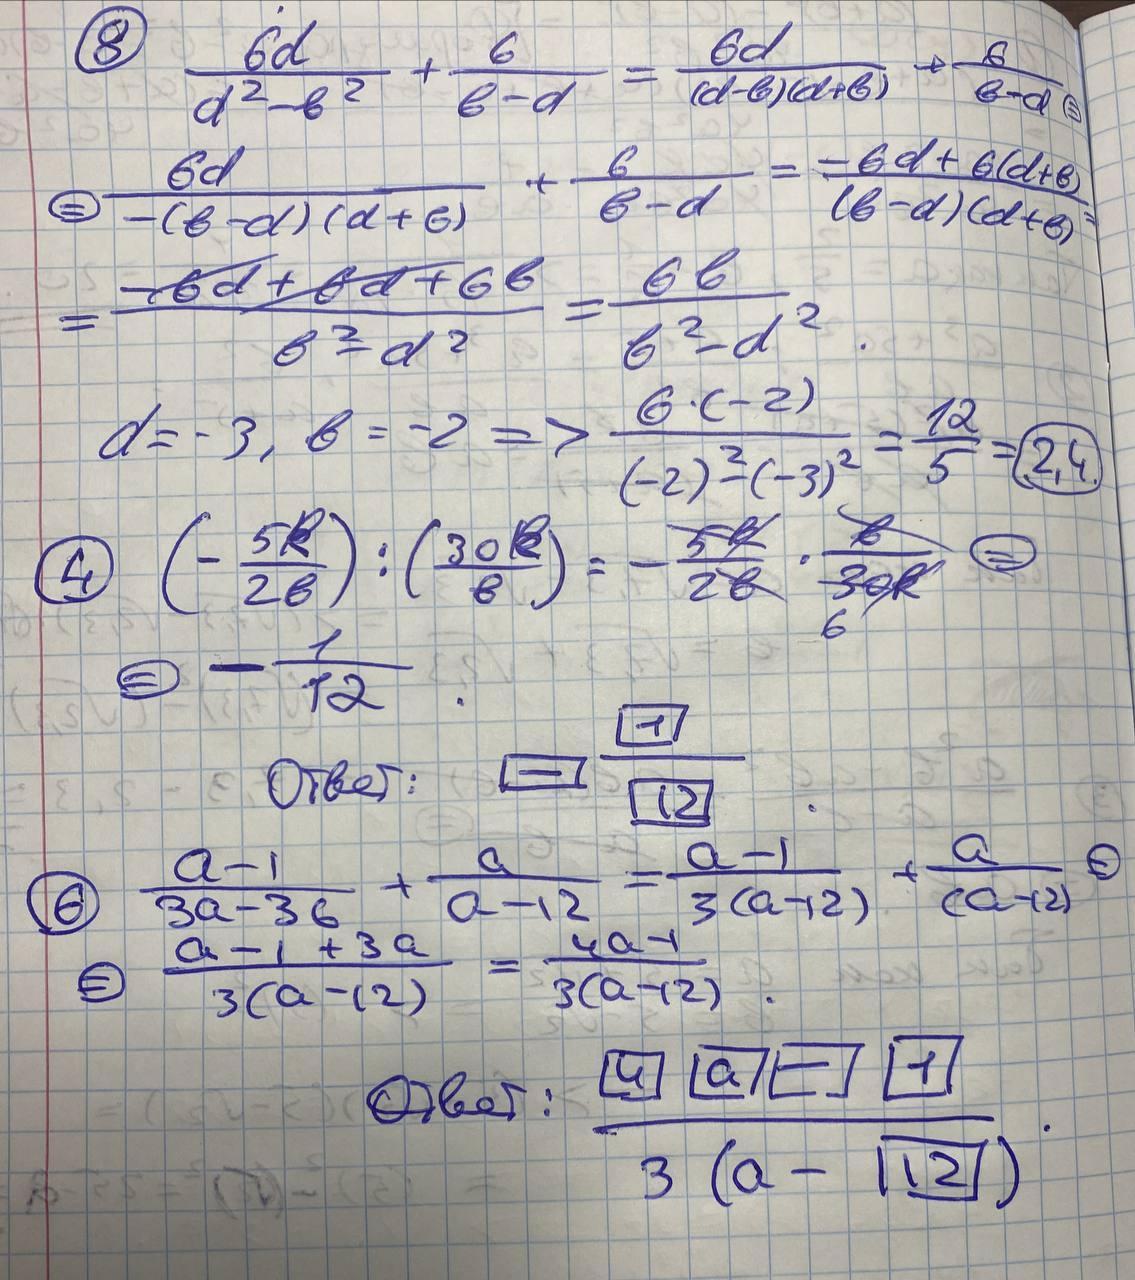 ⑧ 6d/(d²-в²) + 6/(в-d) = 6d/((d-в)(d+в)) + 6/(в-d) ⊜
⊜ 6d/(-(в-d)(d+в)) + 6/(в-d) = (-6d+6(d+в))/((в-d)(d+в)) =
= (-6d+6d+6в)/(в²-d²) = 6в/(в²-d²).
d=-3, в=-2 => 6·(-2)/((-2)²-(-3)²) = 12/5 = 2,4
④ (-5k/2в) : (30k/в) = -5k/2в · в/30k ⊜
6
⊜ -1/12.
Ответ: - 1/12.
⑥ (a-1)/(3a-36) + a/(a-12) = (a-1)/(3(a-12)) + a/(a-12) ⊜
⊜ (a-1+3a)/(3(a-12)) = (4a-1)/(3(a-12)).
Ответ: (4a-1)/(3(a-12)).